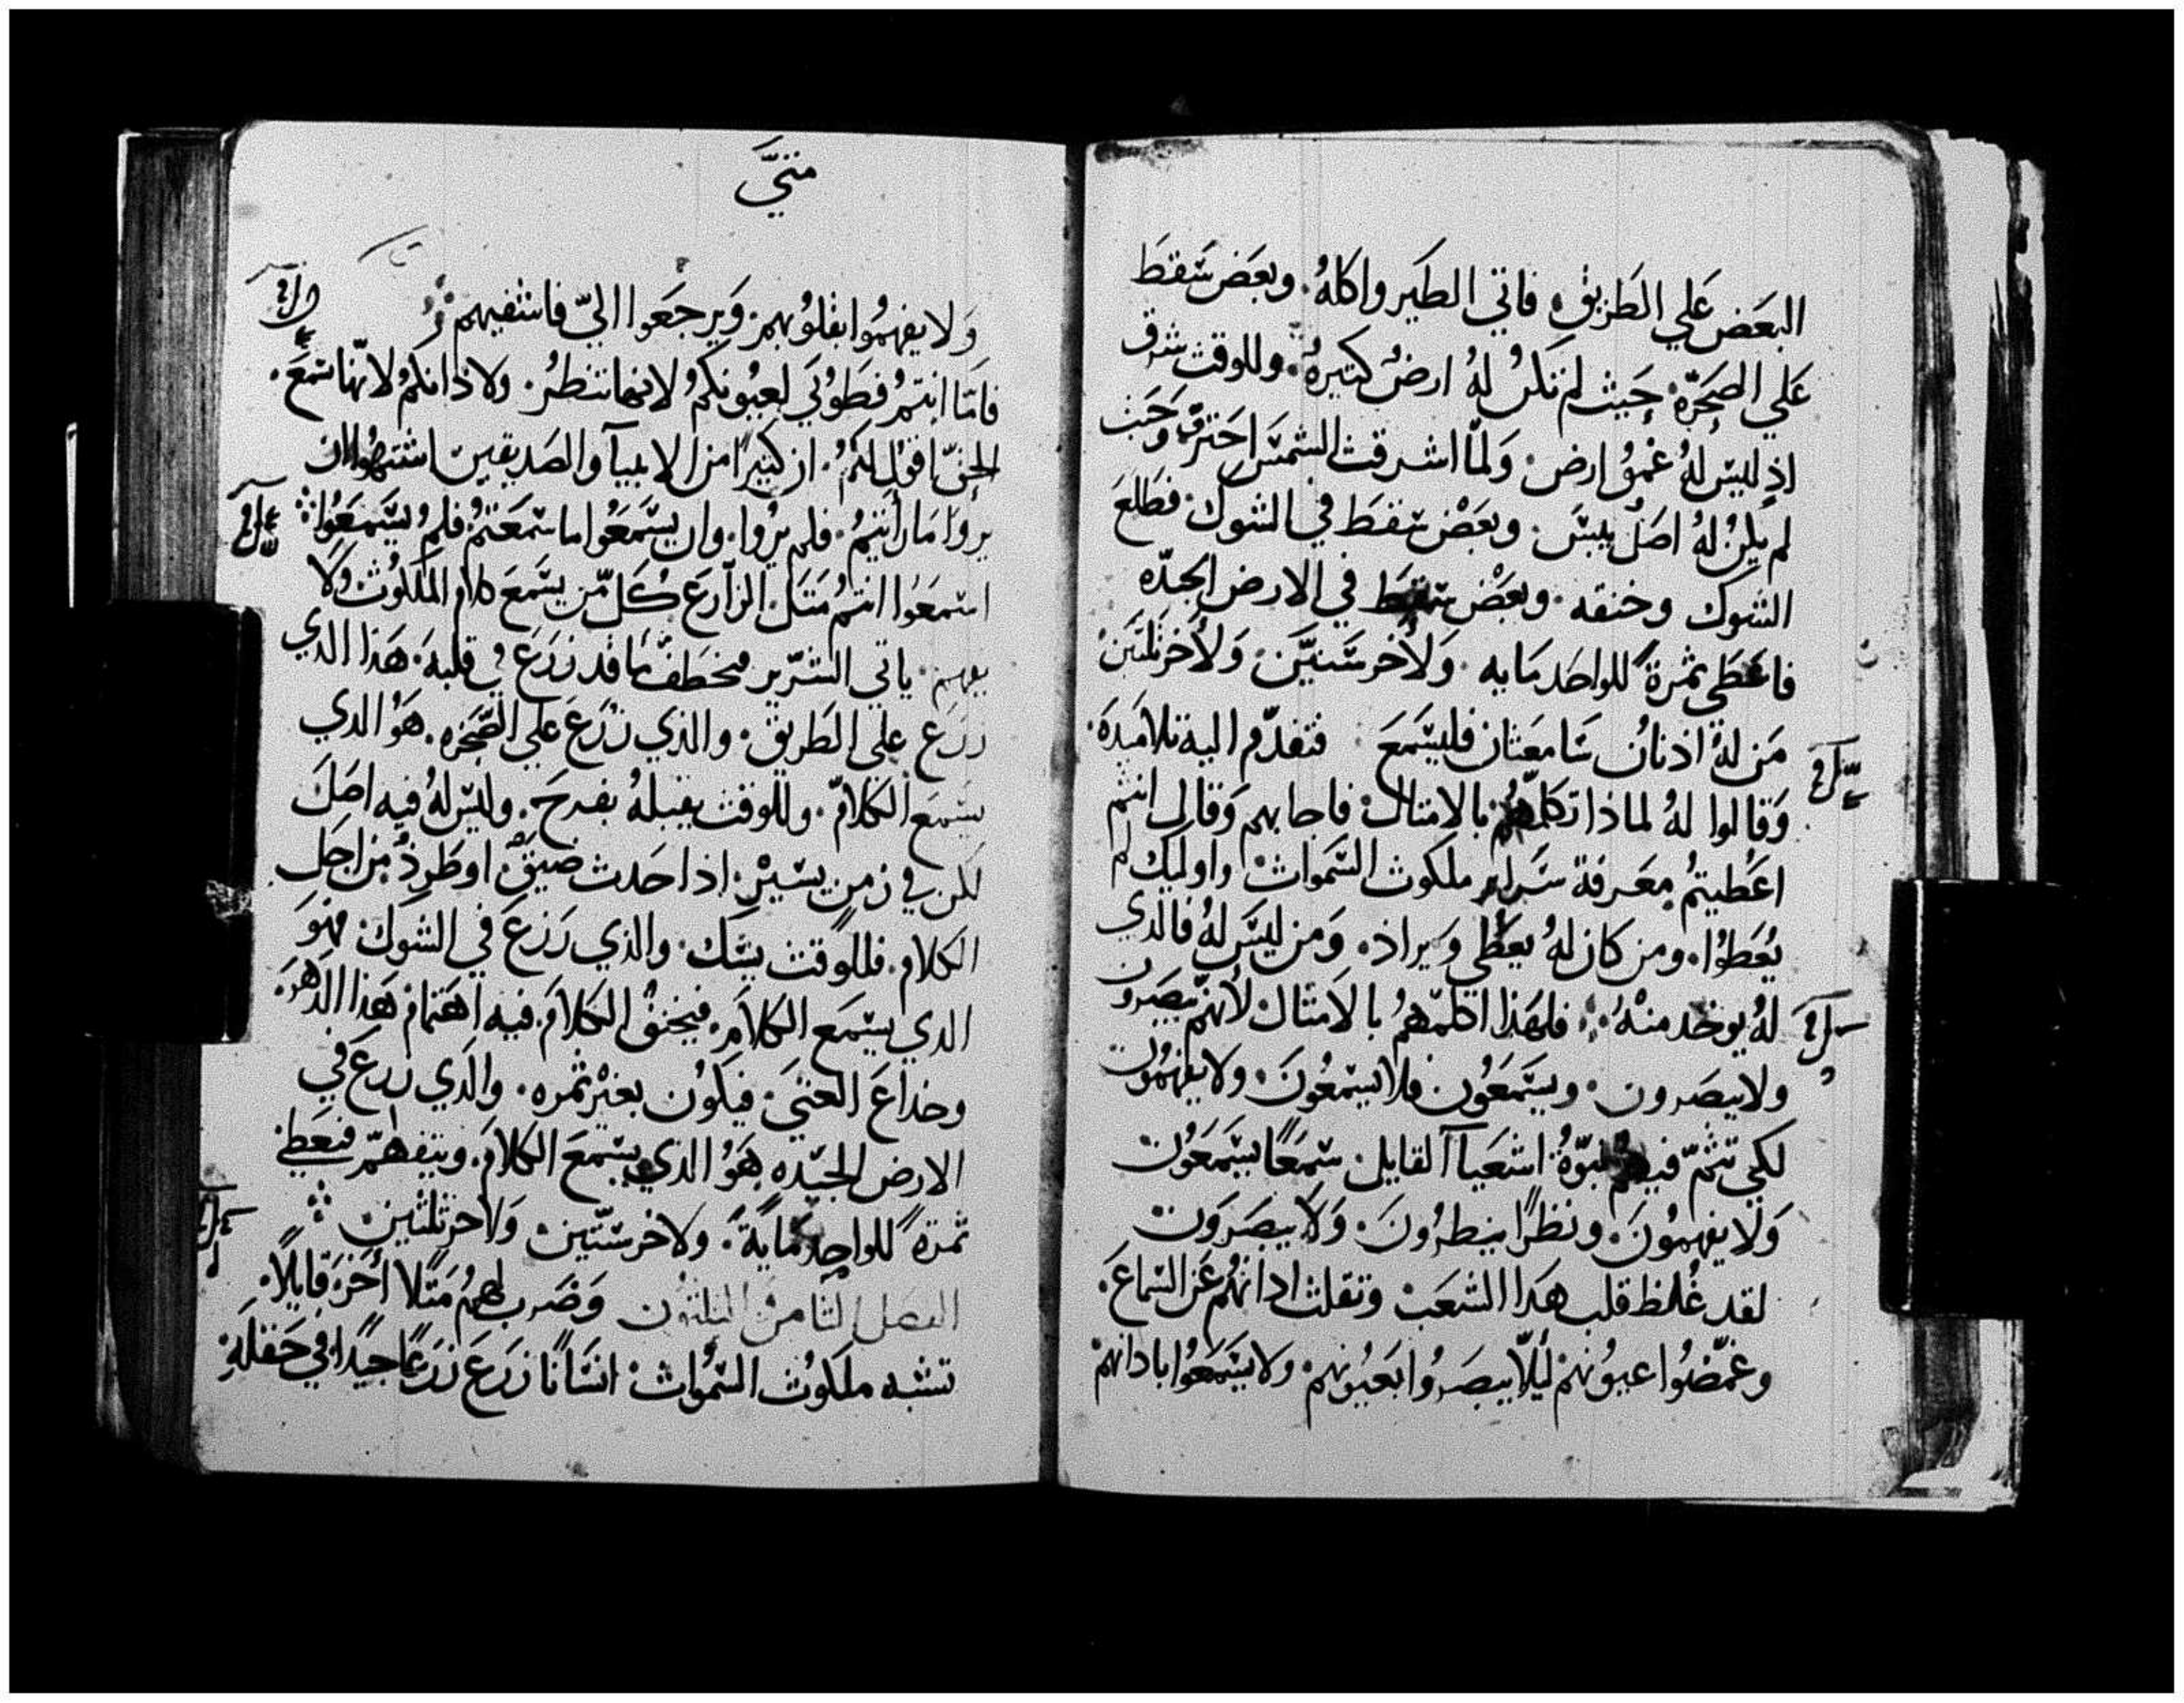 البعَض عَلي الطَريق، فاتي الطَير واكلهُ. وبعَض سَقطَ
عَلي الصَخَرّه. حَيث لم تكنُ لهُ ارضٌ كتيرهٌ. وللوقت شرق
اذ لليسَ لهُ عُمقُ ارض. وَلمّا اشرقت الشمسَ احَترقَ وَحَيث
لم يكنُ لهُ اصَلٌ يبسَ. وبعَضْ سَقطَ في الشوك. فطَلعَ
الشوك وخنقه. وبعَضْ سَقطَ في الارض الجيدّه
فاعَطَي ثمرةً للواحَد مَايه. وَلأخر سَتيَّن. وَلأخر ثَلثَينْ
مَن لهُ اذنانُ سَامعَتان فليسَمعَ. فتقدّم اليه تلامَيدَه.
وَقالوا لهُ لماذا تكلّمهُم بالامتال. فاجابهم وَقال انتم
اعَطيتمُ معَرفة سَراير ملكوت السَموات. واوليك لم
يُعَطوُا. ومن كان لهُ يعَطي وَيراد. وَمن ليسَ لهُ فالذي
لهُ يوخد منهُ. فلهَذا اكلمّهمُ بالامَثال لأنهمّ يبصَرون
ولا يبصَرون. ويسَمعَوُن فلا يسَمعَوُنَ. ولا يفهموُن
لكي تتمّ فيهمُ نبوّةُ اشعَياآ القايل. سَمعًا يسَمَعَوُن
وَلا يفهموُنَ. ونظرًا ينظرُونَ. وَلا يبصَرَون
لقد غُلظ قلب هَدا الشعَب وتقلت ادانهُم عَن السَماعَ.
وغمّضوُا عيوُنهمْ ليلّا يبصَرُوا بعَيوُنهمْ. ولا يسَمعَوُا بادانهمْ
متيَّ
وَلا يفهموُا بقلوُبهم. وَيرجعَوا اليّ فاشفيهم
فامَّا انتمُ فطَوُبَي لعيوُنكمُ لانها تنظرُ. ولاذانكمُ لانهّا سَمعَ.
الحقّ اقول لكمُ. ان كثيرًا من الانبيآ والصَديقين اشتهوُا ان
يروَا مَا رأيتمُ. فلم يرُوا. وان يسَمعَوُا ما سَمعَتمُ فلم يسَمعَوُا
اسَمعَوُا انتمُ مَتَل الزآرعَ كُل مّن يسَمعَ كلام المَلكوُت ولا
يفهم. ياتي الشرّير فيخطَف مَا قد زرَعَ في قلبهَ. هَذا الدي
زرَعَ علي الطَريق. والذي زرَعَ علي الصَّخَره. هَوُ الدي
يسَمعَ الكلامّ. وللوقت يقبلهُ بفرحَ. وليسَ لهُ فيه اصَل
لكن في زمن يسَيرْ. اذا حَدث ضيَقٌ او طَردٌ من اجَل
الكلام. فللوقت يشك. والذي زرَعَ في الشوك. فهوَ
الدي يسَمع الكلامَ. فيخنقُ الكلامَ فيه اهَتمام هَذا الدهَرَ.
وخداعَ الغنيَ. فيكوُن بغَيرْ ثمره. والذي زرَعَ في
الارض الجيّده هَوُ الذي يسَمعَ الكلامَ. ويتفهمّ فيعَطي
ثمرةً للواحد مَايةً. ولاخر سَتّين. وَلاخر ثلثين
الفصل الثامن والثلثون وَضرب لهمُ مَثلًا أخَرَ قايلًا.
تشبه ملكوُت السَموُات. انسَانًا زرَعَ زرَعًا جيدًا. في حَقلهَ.